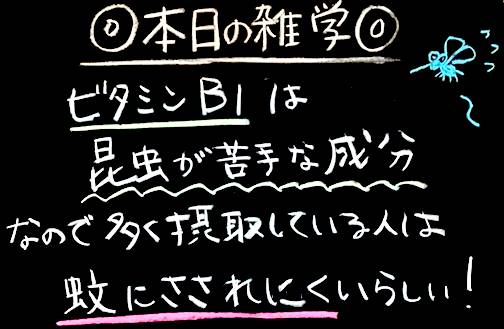 ◎本日の雑学◎
ビタミンB1は
昆虫が苦手な成分
なので多く摂取している人は
蚊にさされにくいらしい!